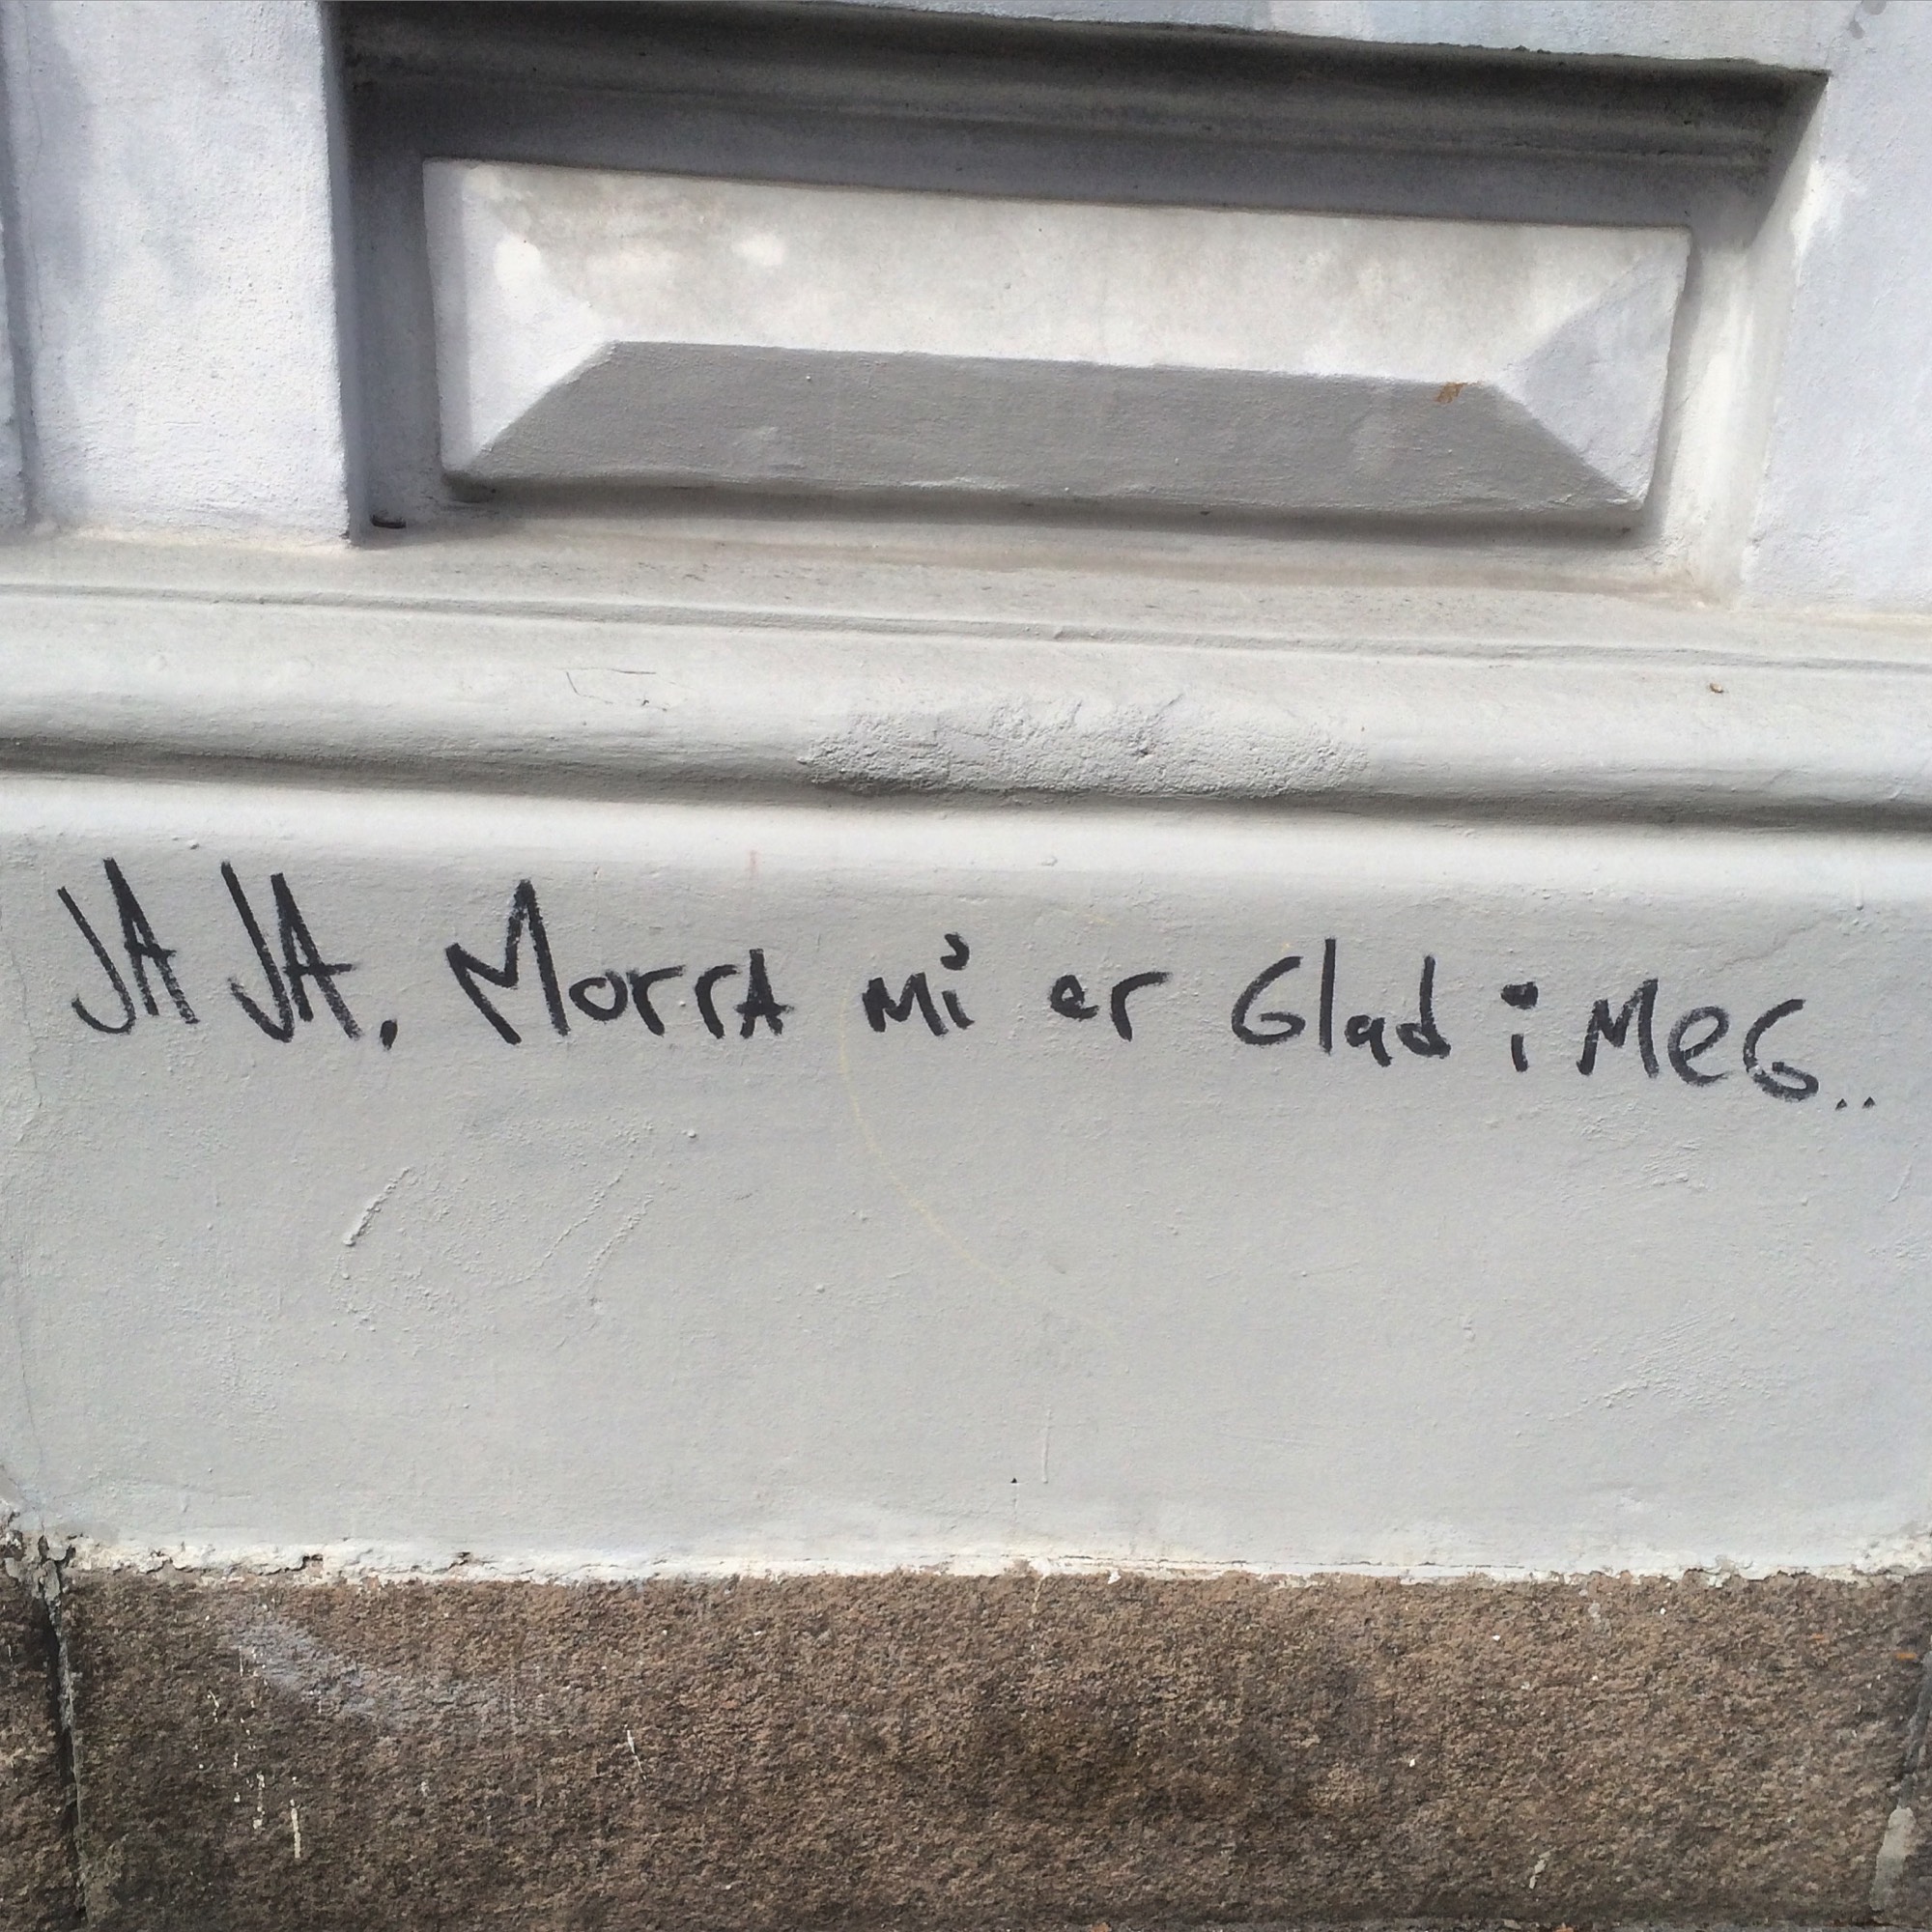 JA JA. MorrA mi er Glad i MeG..